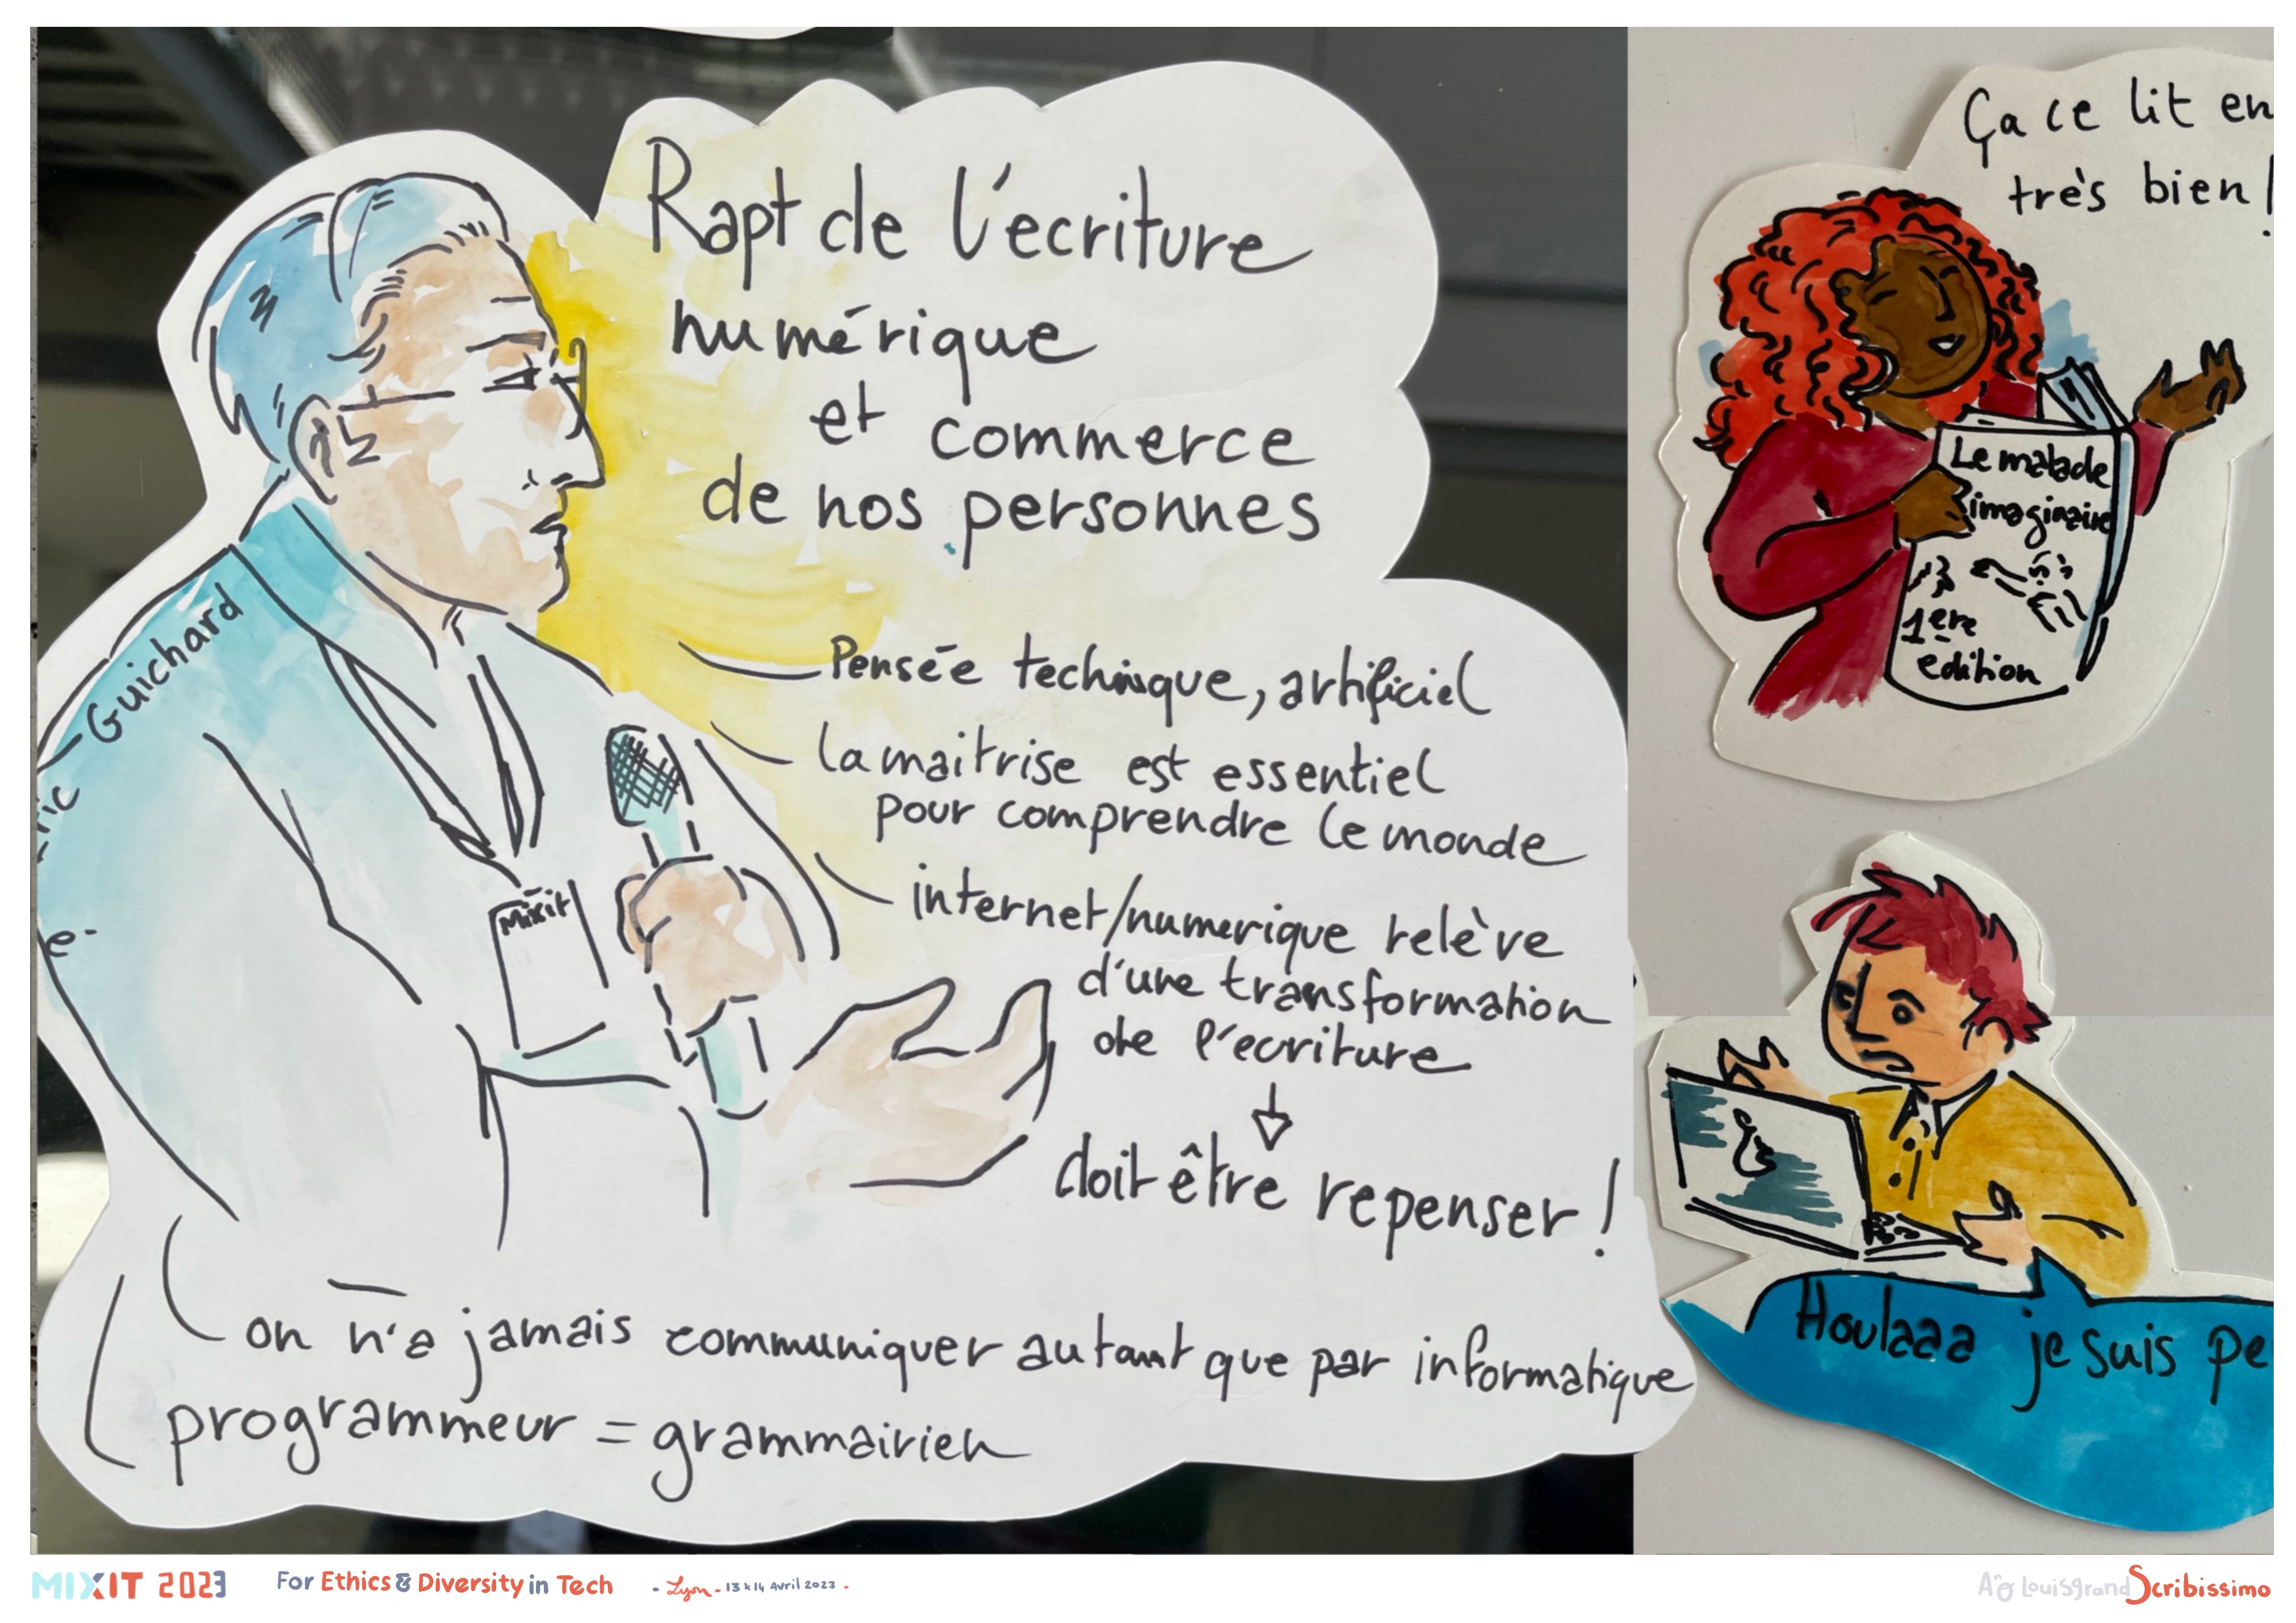 Rapt de l'ecriture
numérique
et commerce
de nos personnes
Guichard
ric
e.
Pensée technique, artificiel
la maitrise est essentiel
pour comprendre le monde
internet/numerique relève
d'une transformation
de l'ecriture
doit être repenser !
Mixit
on n'a jamais communiquer autant que par informatique
programmeur = grammairien
Ça ce lit en
très bien !
Le malade
imaginaire
1ere
edition
Houlaaa je suis pe
MIXIT 2023 For Ethics & Diversity in Tech - Lyon - 13 & 14 Avril 2023 -
Louisgrand Scribissimo